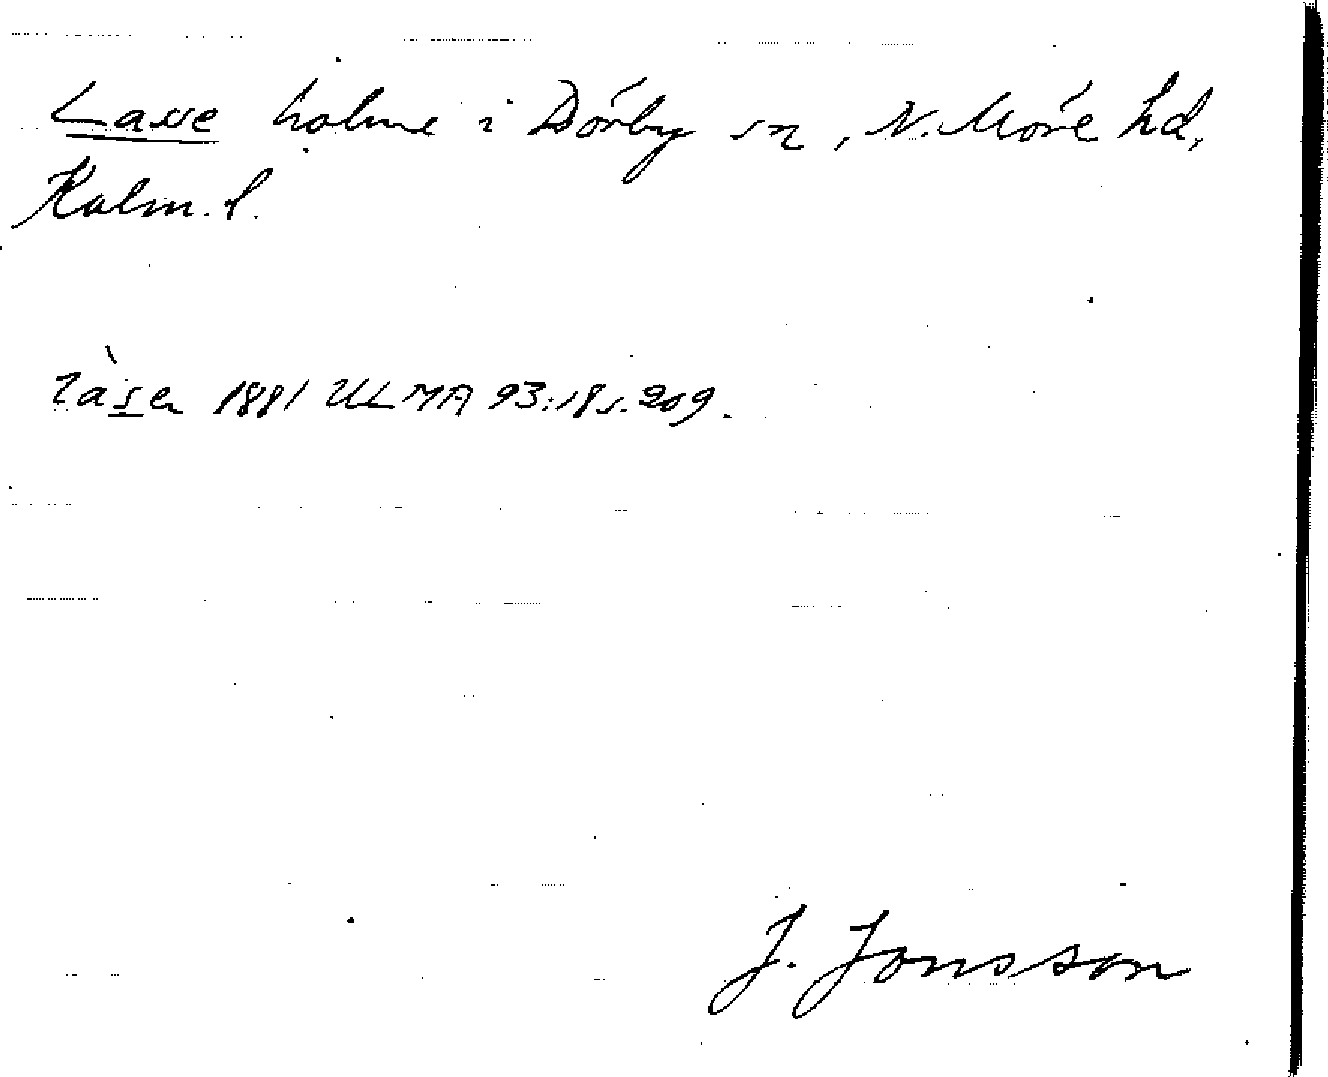 Lasse holme i Dörby sn, N. Möre hd,
Kalm. l.
1881 ULMA 93:18 s. 209.
J. Jonsson